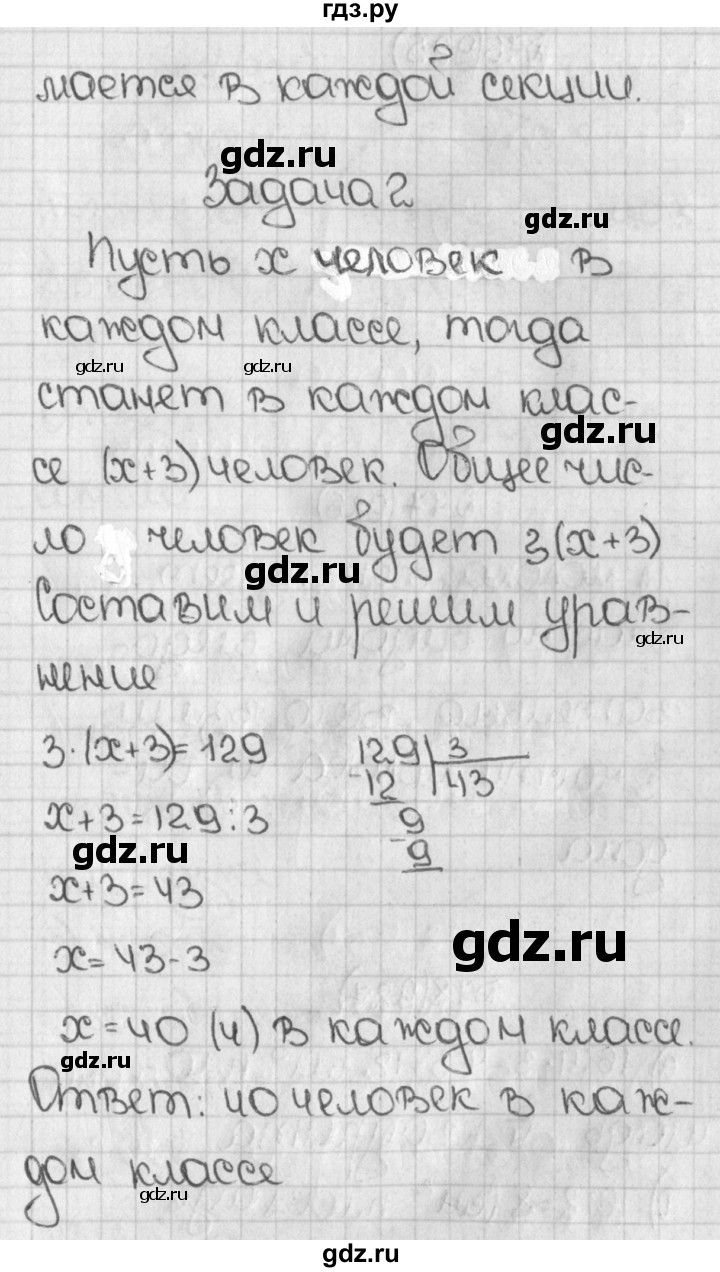 гдз.ру
мается в каждой секции.
gdz.ru
Задача 2
gdz.ru
Пусть x человек в
каждом классе, тогда
gdz.ru gdz.ru
станет в каждом клас-
gdz.ru
се (x+3) человек. Общее чис-
ло человек будет 3(x+3)
gdz.ru
Составим и решим урав-
gdz.ru
нение
3·(x+3)=129
x+3=129:3
gdz.ru
x+3=43
x=43-3
129 3
-12 43
9
-9
gdz.ru
x=40 (ч) в каждом классе.
gdz.ru
Ответ: 40 человек в каж-
дом классе
gdz.ru
gdz.ru